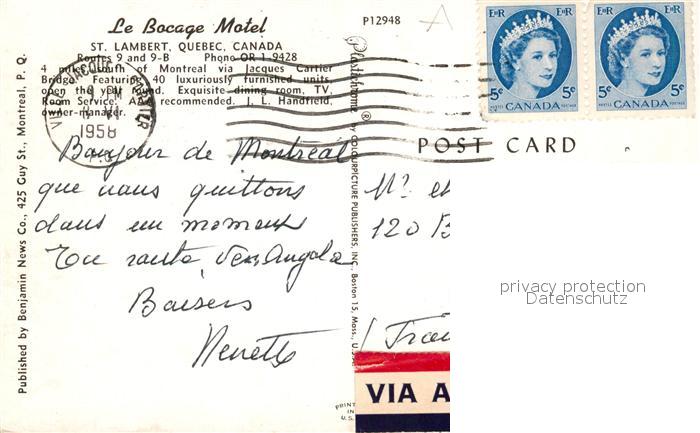 Le Bocage Motel
ST. LAMBERT, QUEBEC, CANADA
Routes 9 and 9-B Phone OR 1-9428
4 miles south of Montreal via Jacques Cartier
Bridge. Featuring 40 luxuriously furnished units,
open the year round. Exquisite dining room, TV,
Room Service. AAA recommended. J. L. Handfield,
owner-manager.
P12948
1958
EIIR EIIR
5c 5c 5c 5c
CANADA CANADA
POSTES POSTAGE POSTES POSTAGE
POST CARD
Published by Benjamin News Co., 425 Guy St., Montreal, P. Q.
Plastichrome ® by COLOURPICTURE PUBLISHERS, INC., Boston 15, Mass., U.S.A.
Bonjour de Montréal
que nous quittons
dans un moment
En route
Baisers
Nenette
Mr et
120 B
/ Fran
privacy protection
Datenschutz
VIA A
PRINT
IN
U. S.